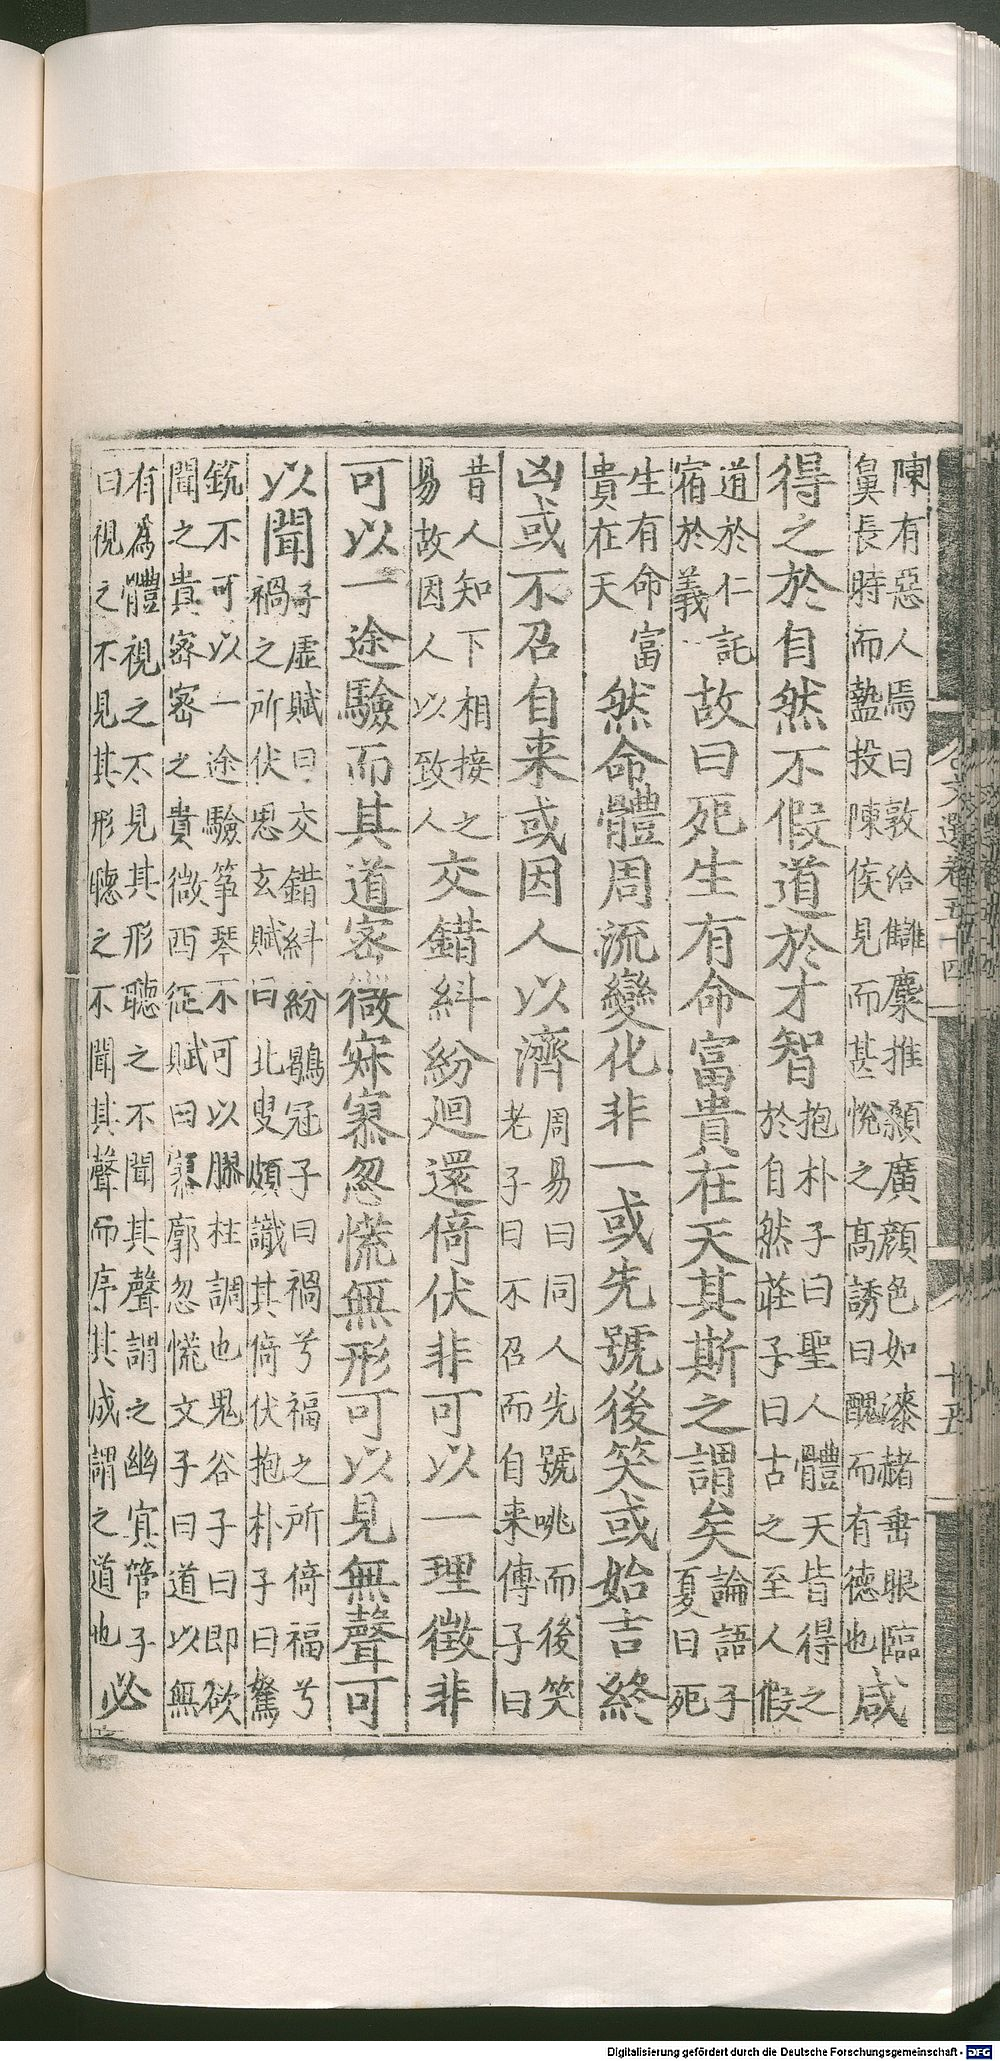 陳有惡人焉曰敦洽讎麋推顙廣顏色如漆赭垂眼臨
鼻長時而盭投陳侯見而甚悅之高誘曰醜而有德也咸
得之於自然不假道於才智抱朴子曰聖人體天皆得之
於自然莊子曰古之至人假
道於仁託
宿於義故曰死生有命富貴在天其斯之謂矣論語子
夏曰死
生有命富
貴在天然命體周流變化非一或先號後笑或始吉終
凶或不召自来或因人以濟周易曰同人先號咷而後笑
老子曰不召而自来傅子曰
昔人知下相接之
易故因人以致人交錯糾紛廻還倚伏非可以一理徵非
可以一途驗而其道密微寂寥忽慌無形可以見無聲可
以聞子虛賦曰交錯糾紛鶡冠子曰禍兮福之所倚福兮
禍之所伏思玄賦曰北叟頗識其倚伏抱朴子曰駑
銳不可以一途驗筝琴不可以膠柱調也鬼谷子曰即欲
聞之貴密密之貴微西征賦曰寥廓忽慌文子曰道以無
有為體視之不見其形聽之不聞其聲謂之幽冥管子
曰視之不見其形聽之不聞其聲而序其成謂之道也必
文選卷五十四
十五
Digitalisierung gefördert durch die Deutsche Forschungsgemeinschaft - DFG